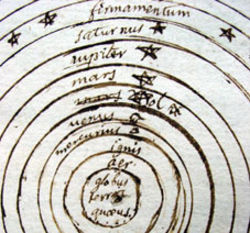 firmamentum
saturnus
iupiter
mars
mars sol
venus
mercurius
ignis
aer.
globus
terre
aqueus.